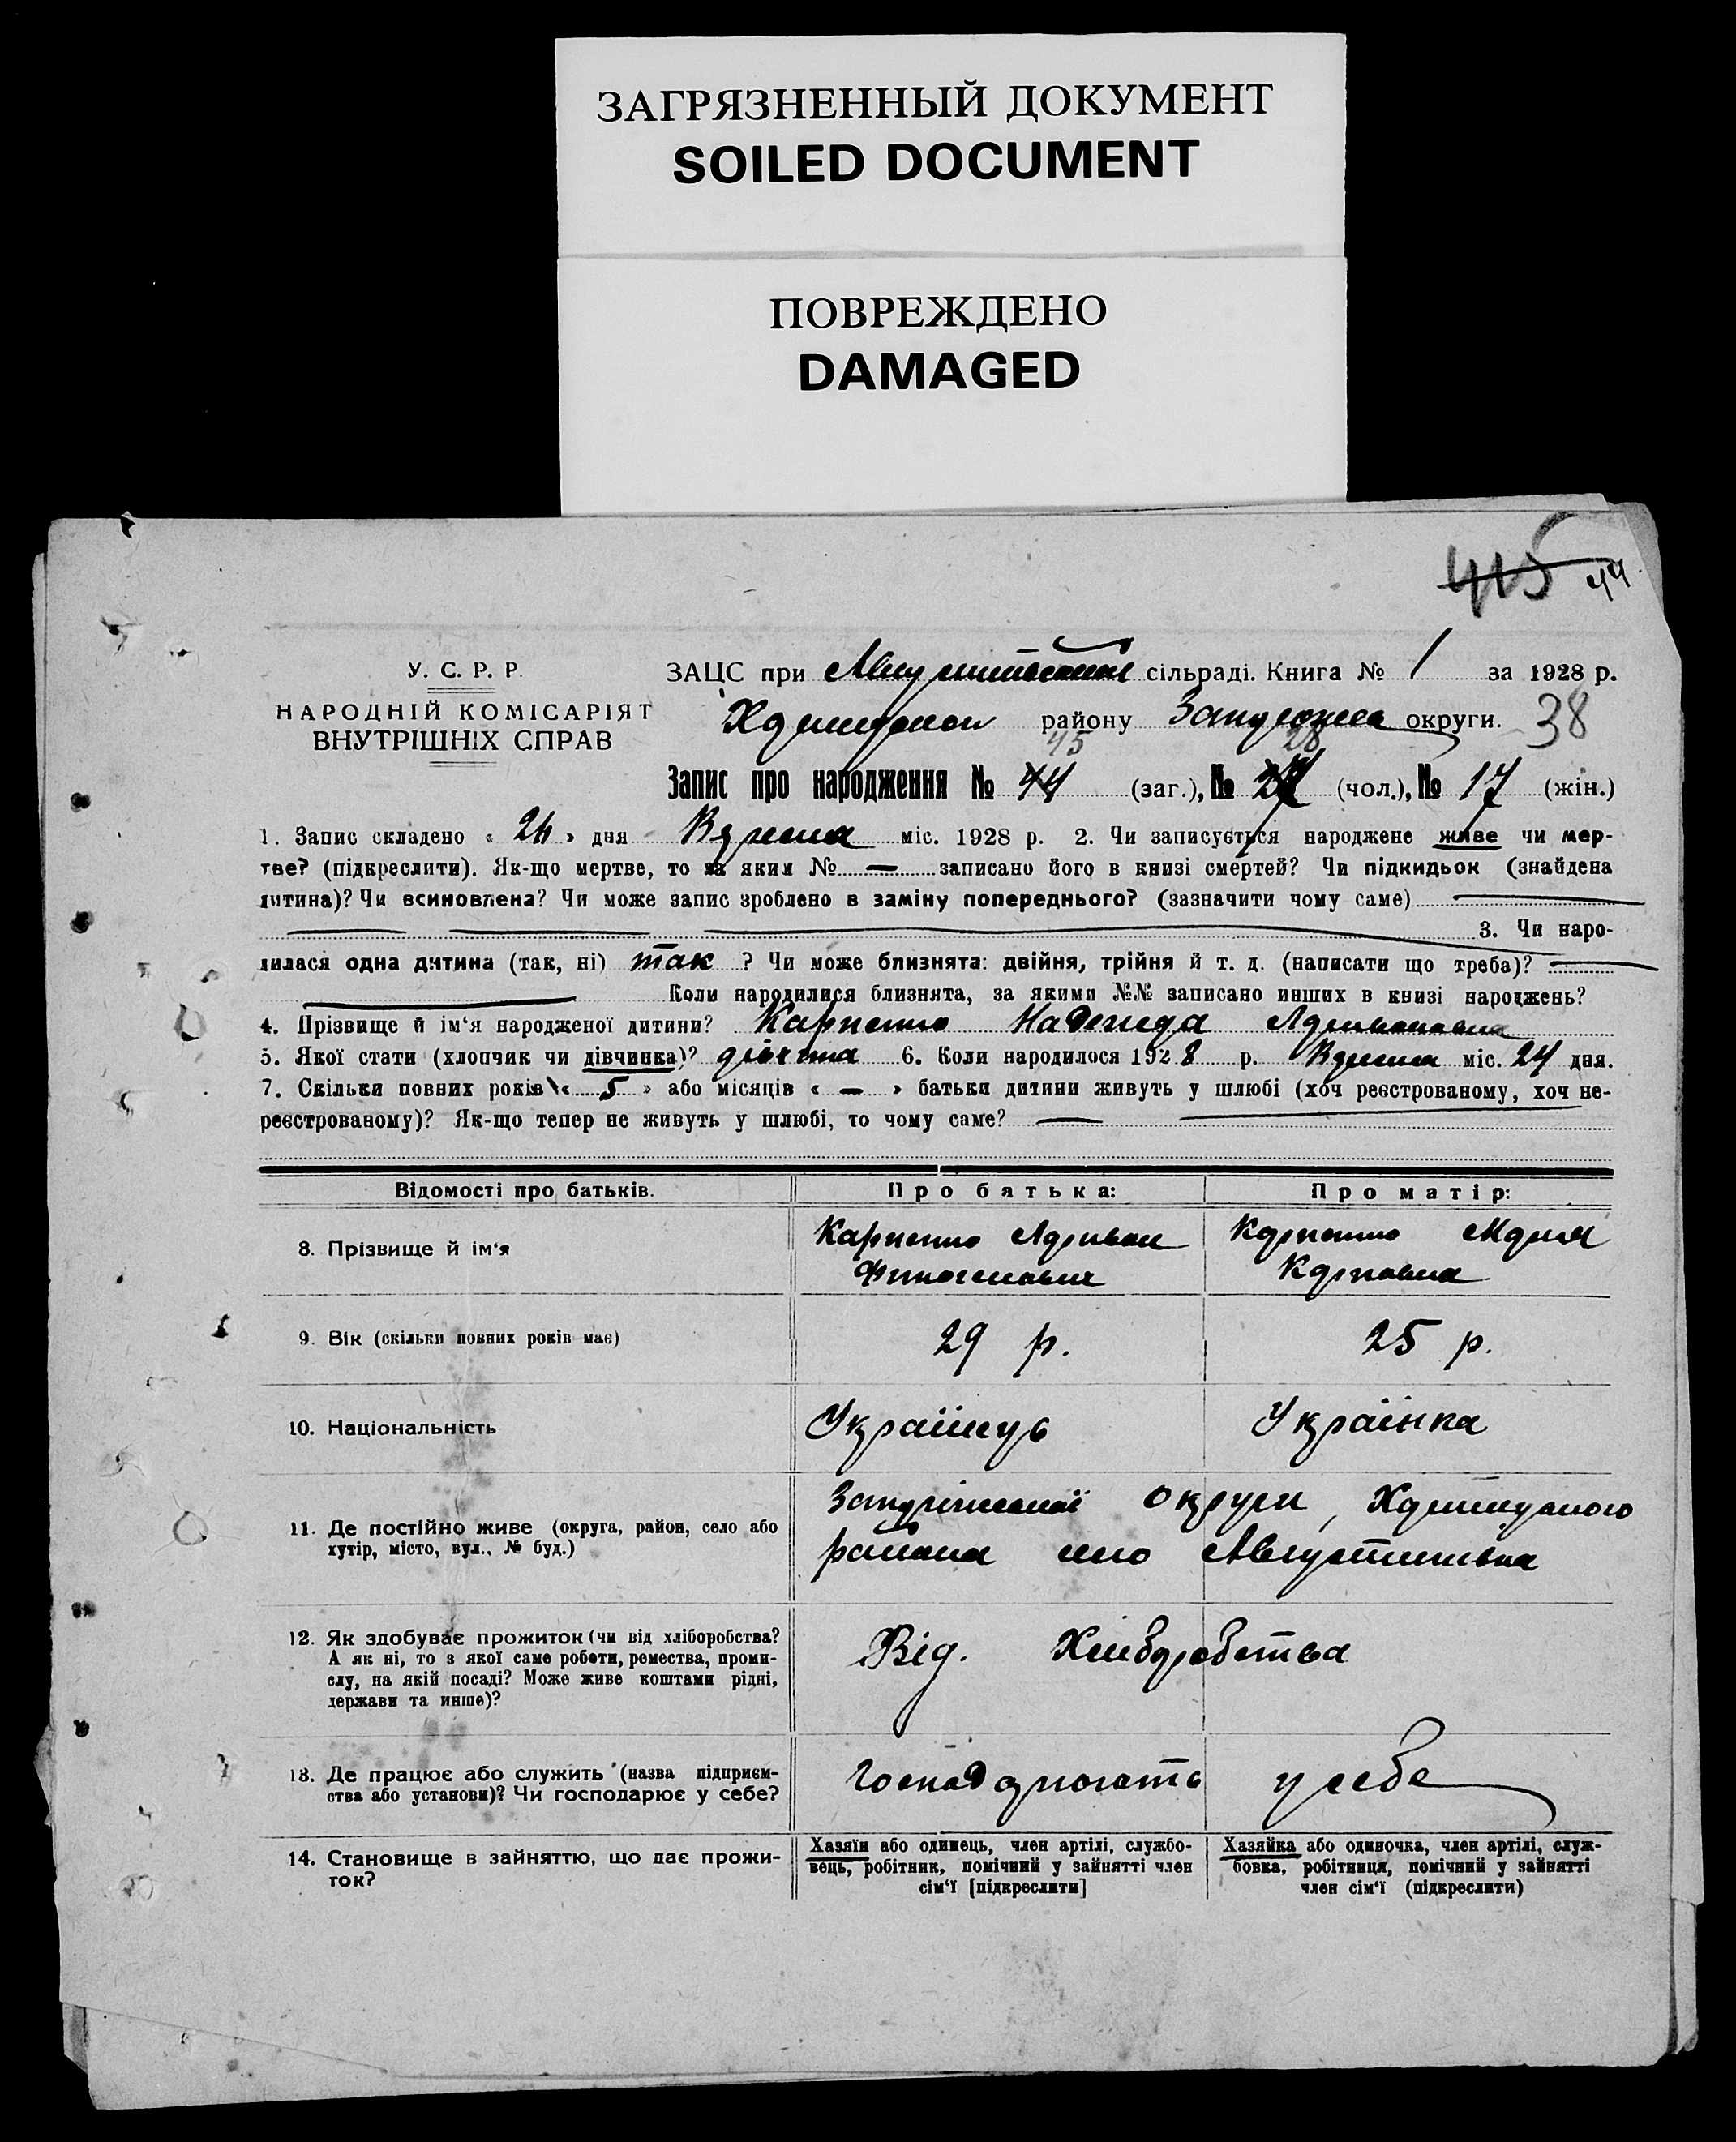 ЗАГРЯЗНЕННЫЙ ДОКУМЕНТ
SOILED DOCUMENT
ПОВРЕЖДЕНО
DAMAGED
415 44
У. С. Р. Р.
НАРОДНІЙ КОМІСАРІЯТ
ВНУТРІШНІХ СПРАВ
ЗАЦС при сільраді. Книга № 1 за 1928 р.
району округи. 38
45 28
Запис про народження № 44 (заг.), № 27 (чол.), № 17 (жін.)
1. Запис складено « 26 » дня міс. 1928 р. 2. Чи записується народжене живе чи мер-
тве? (підкреслити). Як-що мертве, то за яким № — записано його в книзі смертей? Чи підкидьок (знайдена
дитина)? Чи всиновлена? Чи може запис зроблено в заміну попереднього? (зазначити чому саме)
3. Чи наро-
дилася одна дитина (так, ні) так ? Чи може близнята: двійня, трійня й т. д. (написати що треба)?
Коли народилися близнята, за якими №№ записано инших в книзі народжень?
4. Прізвище й ім'я народженої дитини? Карпенко Надежда
5. Якої стати (хлопчик чи дівчинка)? 6. Коли народилося 1928 р. міс. 24 дня.
7. Скільки повних років « 5 » або місяців « — » батьки дитини живуть у шлюбі (хоч реєстрованому, хоч не-
реєстрованому)? Як-що тепер не живуть у шлюбі, то чому саме? —
Відомості про батьків. Про батька: Про матір:
8. Прізвище й ім'я Карпенко Карпенко Марія
Карповна
9. Вік (скільки повних років має) 29 р. 25 р.
10. Національність Українець Українка
11. Де постійно живе (округа, район, село або Запоріжської Округи,
хутір, місто, вул., № буд.) района село Августинівка
12. Як здобуває прожиток (чи від хліборобства? Від. Хліборобства
А як ні, то з якої саме роботи, ремества, проми-
слу, на якій посаді? Може живе коштами рідні,
держави та инше)?
13. Де працює або служить (назва підприєм- Господарюють у себе
ства або установи)? Чи господарює у себе?
14. Становище в зайняттю, що дає прожи-
ток?
Хазяїн або одинець, член артілі, службо-
вець, робітник, помічний у зайнятті член
сім'ї [підкреслити]
Хазяйка або одиночка, член артілі, служ-
бовка, робітниця, помічний у зайнятті
член сім'ї (підкреслити)